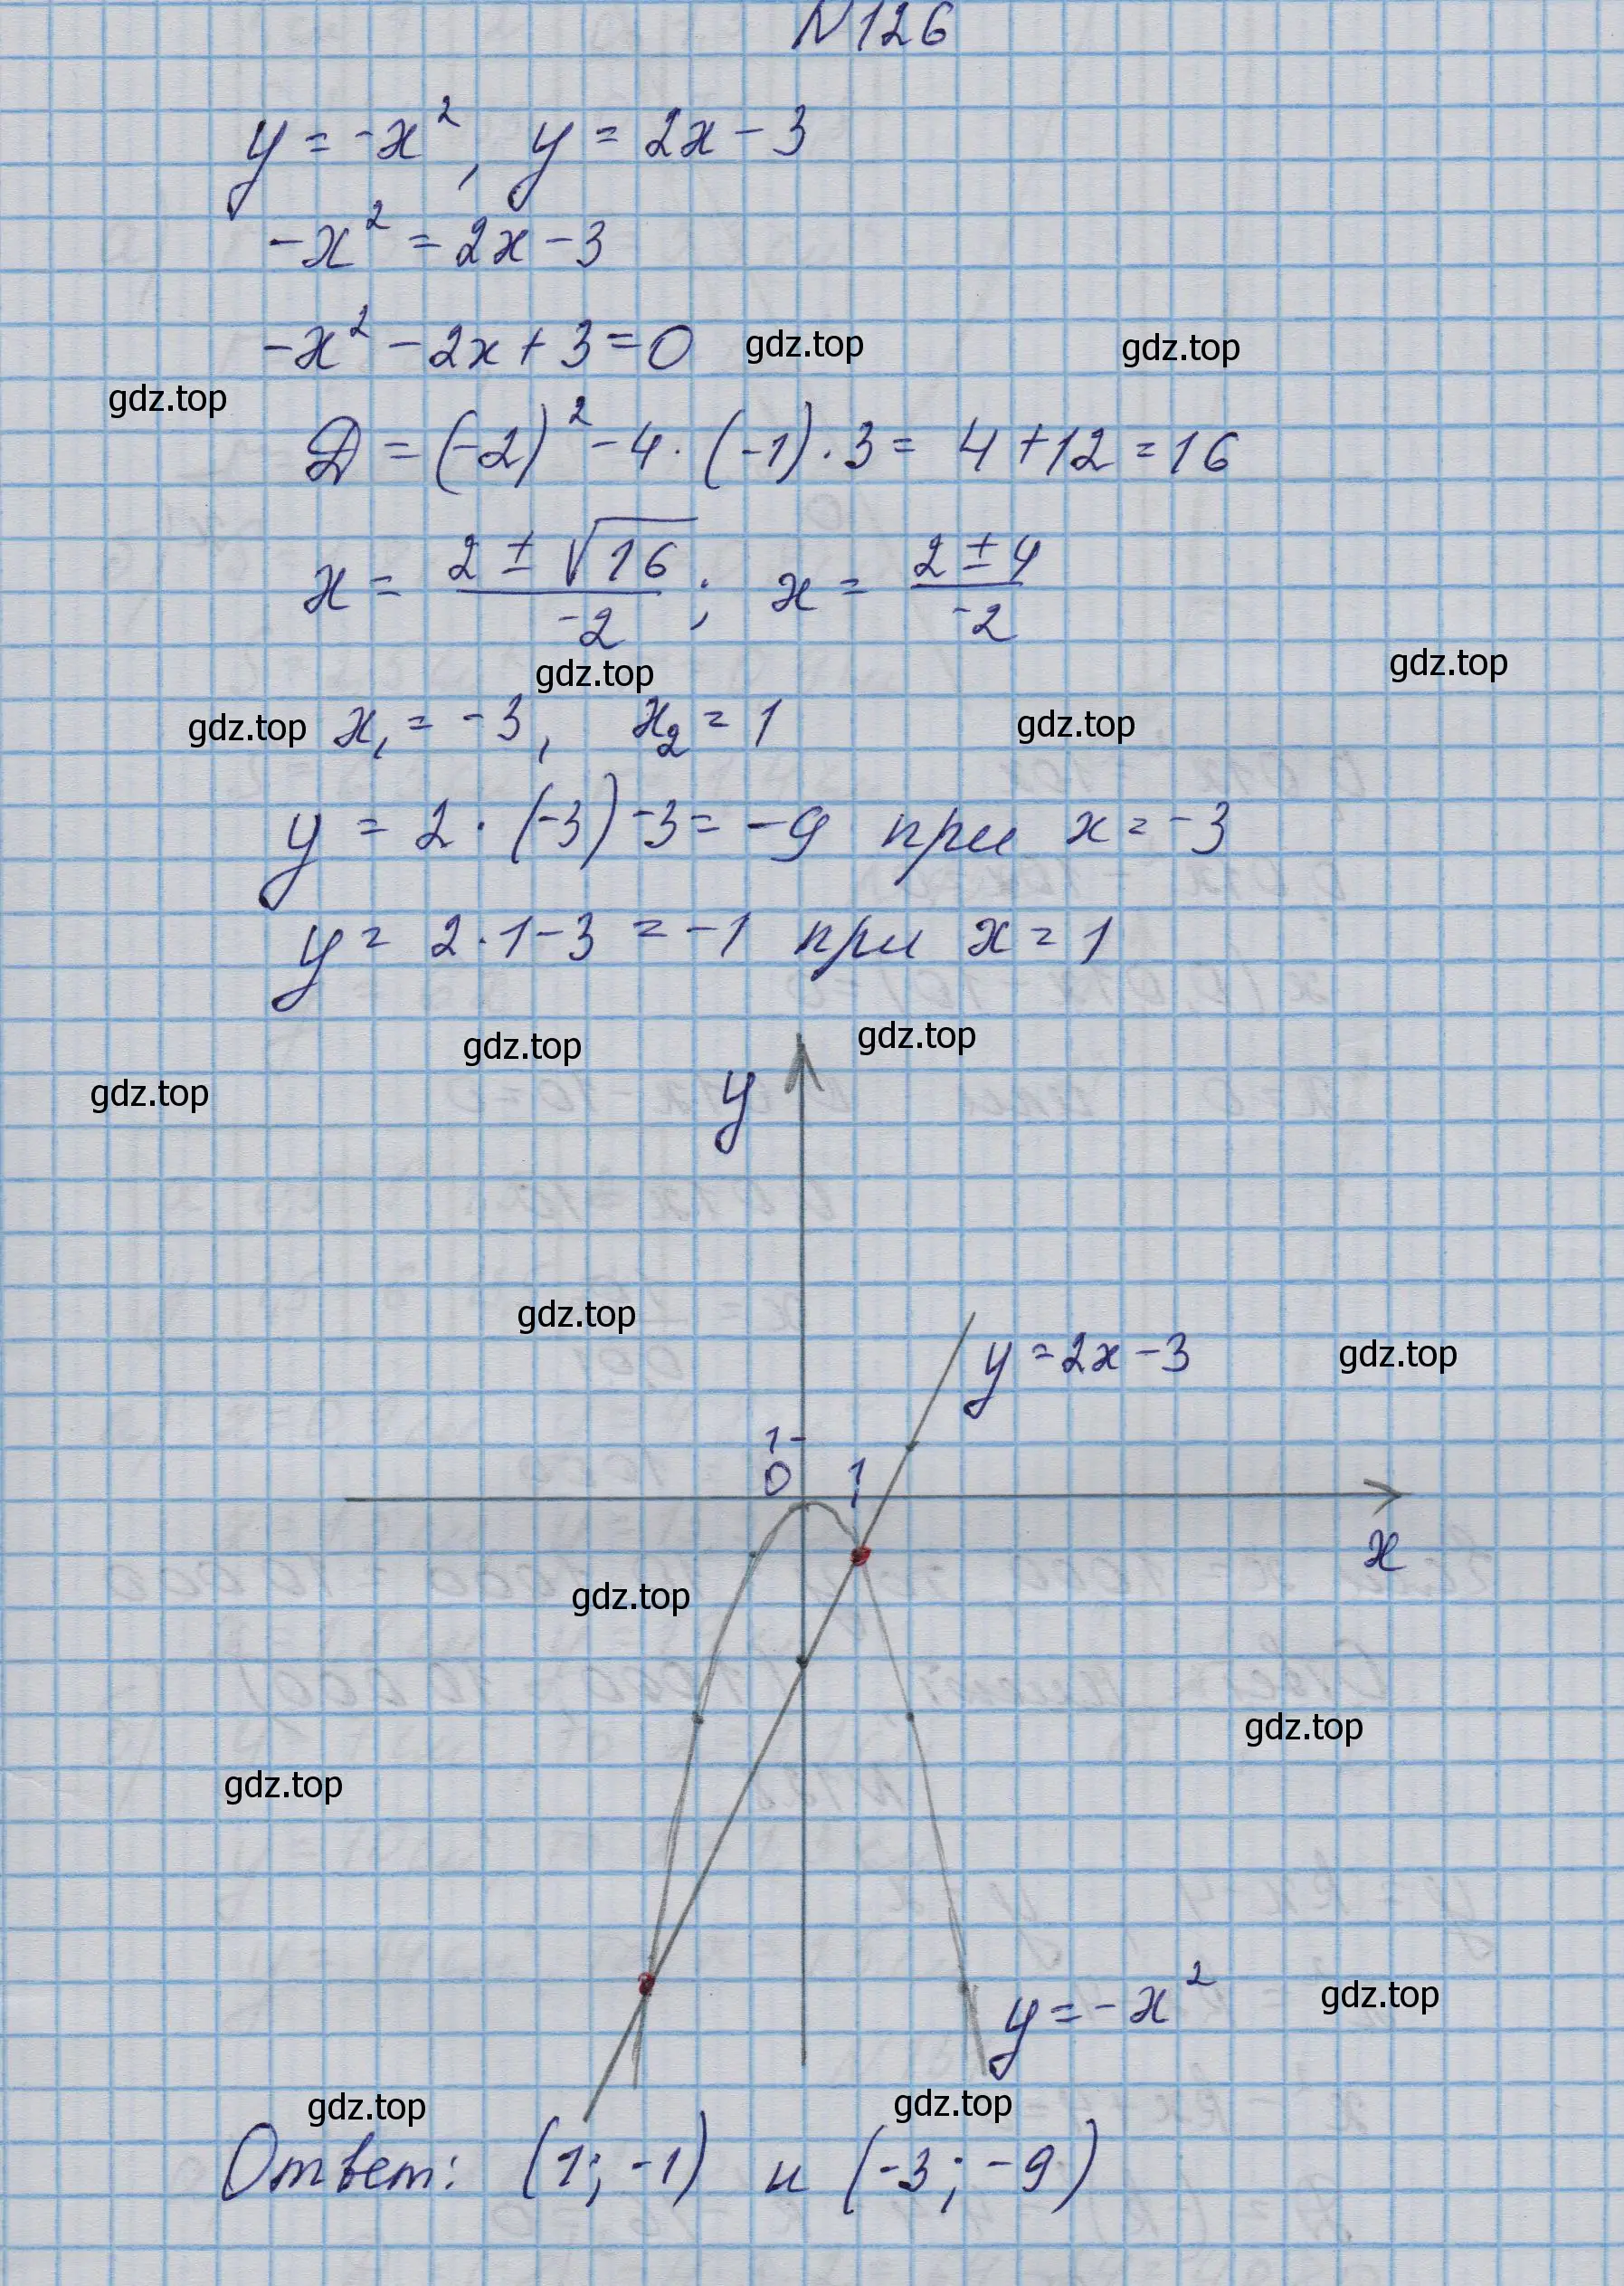 N126
y = -x², y = 2x - 3
-x² = 2x - 3
-x² - 2x + 3 = 0
gdz.top gdz.top
gdz.top
D = (-2)² - 4 · (-1) · 3 = 4 + 12 = 16
x = (2 ± √16)/(-2); x = (2 ± 4)/(-2)
gdz.top gdz.top
gdz.top x₁ = -3, x₂ = 1 gdz.top
y = 2 · (-3) - 3 = -9 при x = -3
y = 2 · 1 - 3 = -1 при x = 1
gdz.top gdz.top
gdz.top
y
gdz.top
y = 2x - 3 gdz.top
1
0 1
x
gdz.top
gdz.top
gdz.top
y = -x² gdz.top
gdz.top gdz.top
Ответ: (1; -1) и (-3; -9)